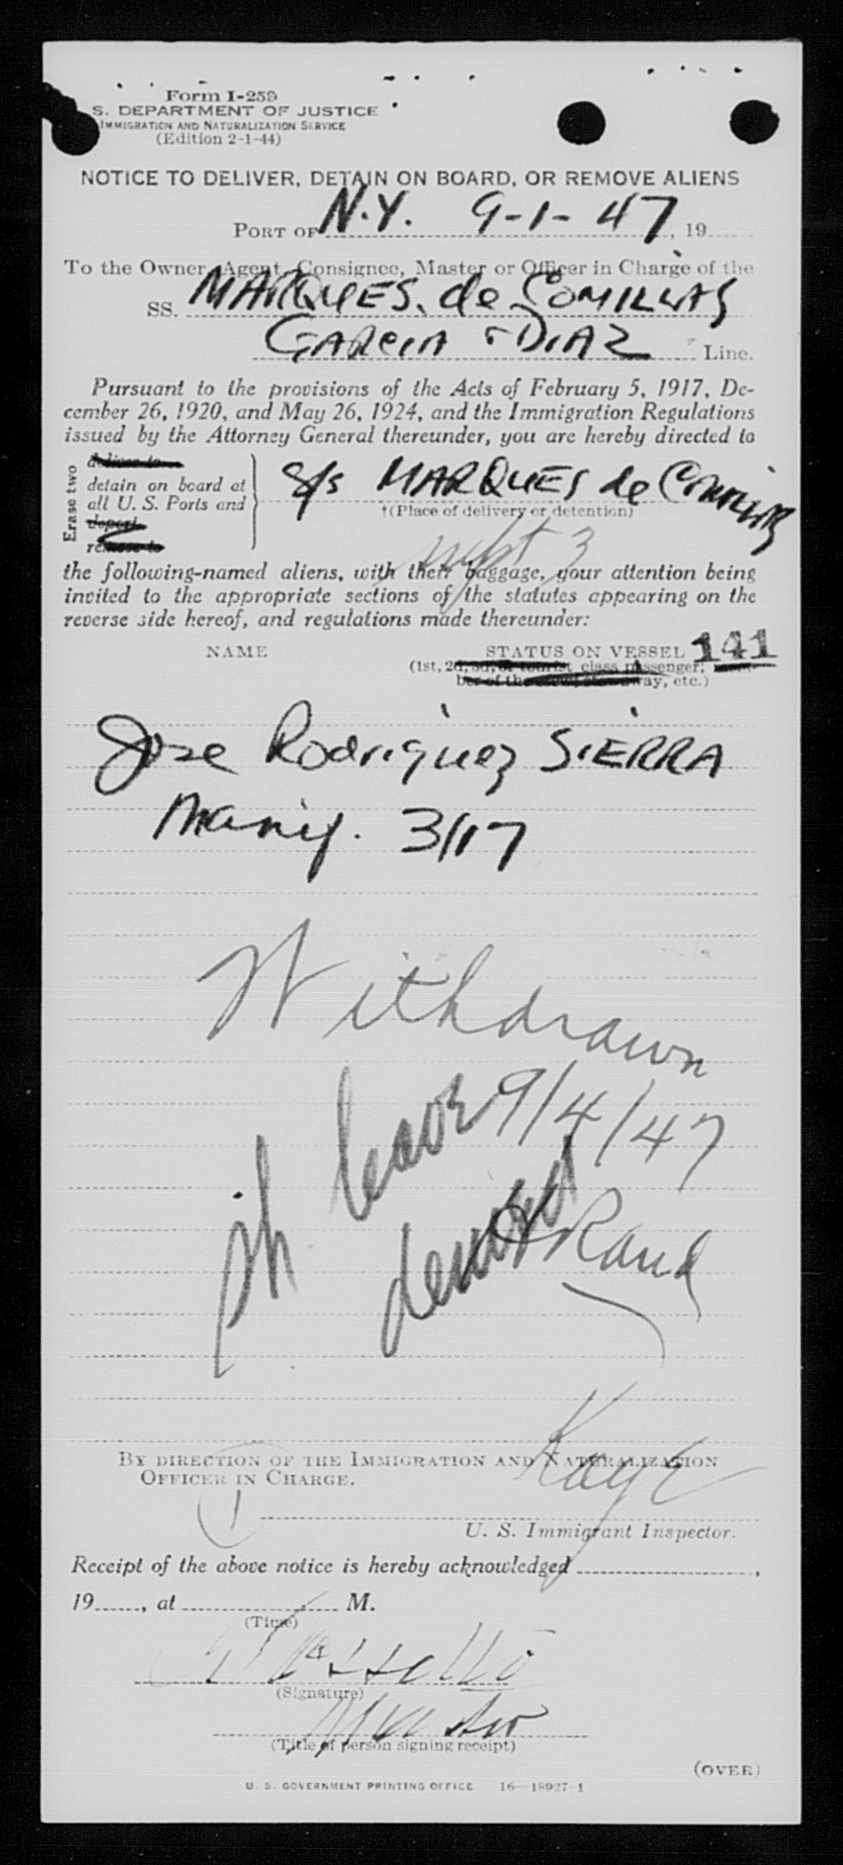 Form I-259
S. DEPARTMENT OF JUSTICE
IMMIGRATION AND NATURALIZATION SERVICE
(Edition 2-1-44)
NOTICE TO DELIVER, DETAIN ON BOARD, OR REMOVE ALIENS
PORT OF N.Y. 9-1-47, 19
To the Owner, Agent, Consignee, Master or Officer in Charge of the
SS. MARQUES. de COMILLAS
GARCIA & DIAZ Line.
Pursuant to the provisions of the Acts of February 5, 1917, De-
cember 26, 1920, and May 26, 1924, and the Immigration Regulations
issued by the Attorney General thereunder, you are hereby directed to
Erase two
deliver to
detain on board at
all U. S. Ports and
deport
remove to
S/S MARQUES de COMILLAS
†(Place of delivery or detention)
sept 3
the following-named aliens, with their baggage, your attention being
invited to the appropriate sections of the statutes appearing on the
reverse side hereof, and regulations made thereunder:
NAME STATUS ON VESSEL 141
(1st, 2d, 3d, or tourist class passenger; mem-
ber of the crew, stowaway, etc.)
Jose Rodriguez SIERRA
Manif. 3/17
Withdrawn
9/4/47
sh leave
denied
Rand
Kaye
BY DIRECTION OF THE IMMIGRATION AND NATURALIZATION
OFFICER IN CHARGE.
1
U. S. Immigrant Inspector.
Receipt of the above notice is hereby acknowledged
19, at M.
(Time)
(Signature)
(Title of person signing receipt)
(OVER)
U. S. GOVERNMENT PRINTING OFFICE 16—18927-1